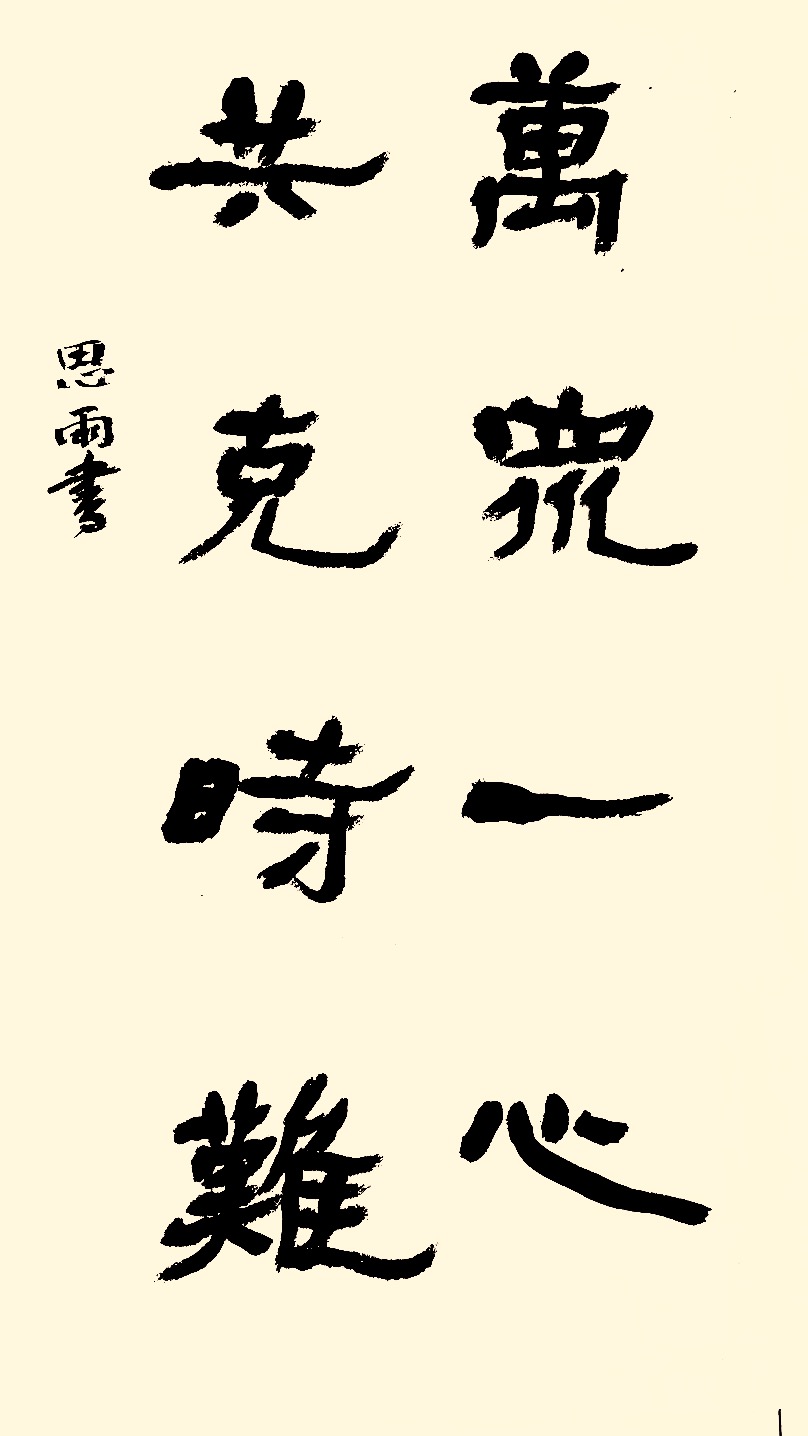 萬眾一心
共克時難
思雨書